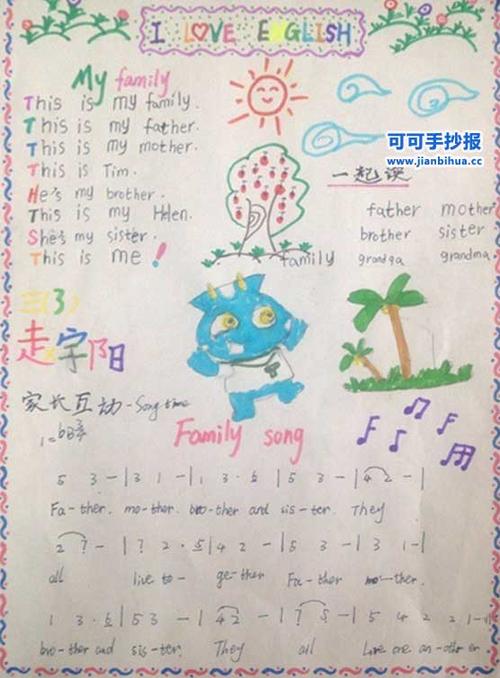 I LOVE ENGLISH
My family
This is my family.
This is my father.
This is my mother.
This is Tim.
He's my brother.
This is my Helen.
She's my sister.
This is me!
可可手抄报
www.jianbihua.cc
一起读
father mother
brother sister
family grandpa grandma
三(3)
走宇阳
家长互动-Song time
Family song
5 3 - | 3 1 - | 1 3 · 5 | 5 3 - | 4 2 - |
Fa-ther. mo-ther. bro-ther and sis-ter. They
2 7 - | 7 2 · 5 | 4 2 - | 5 3 - | 3 1 - |
all live to- ge-ther Fa-ther mo-ther.
1 3 · 5 | 5 3 - | 4 2 - | 7 5 - | 5 4 2 2 1 - |
bro-ther and sis-ter. They all Love one an-oth er.